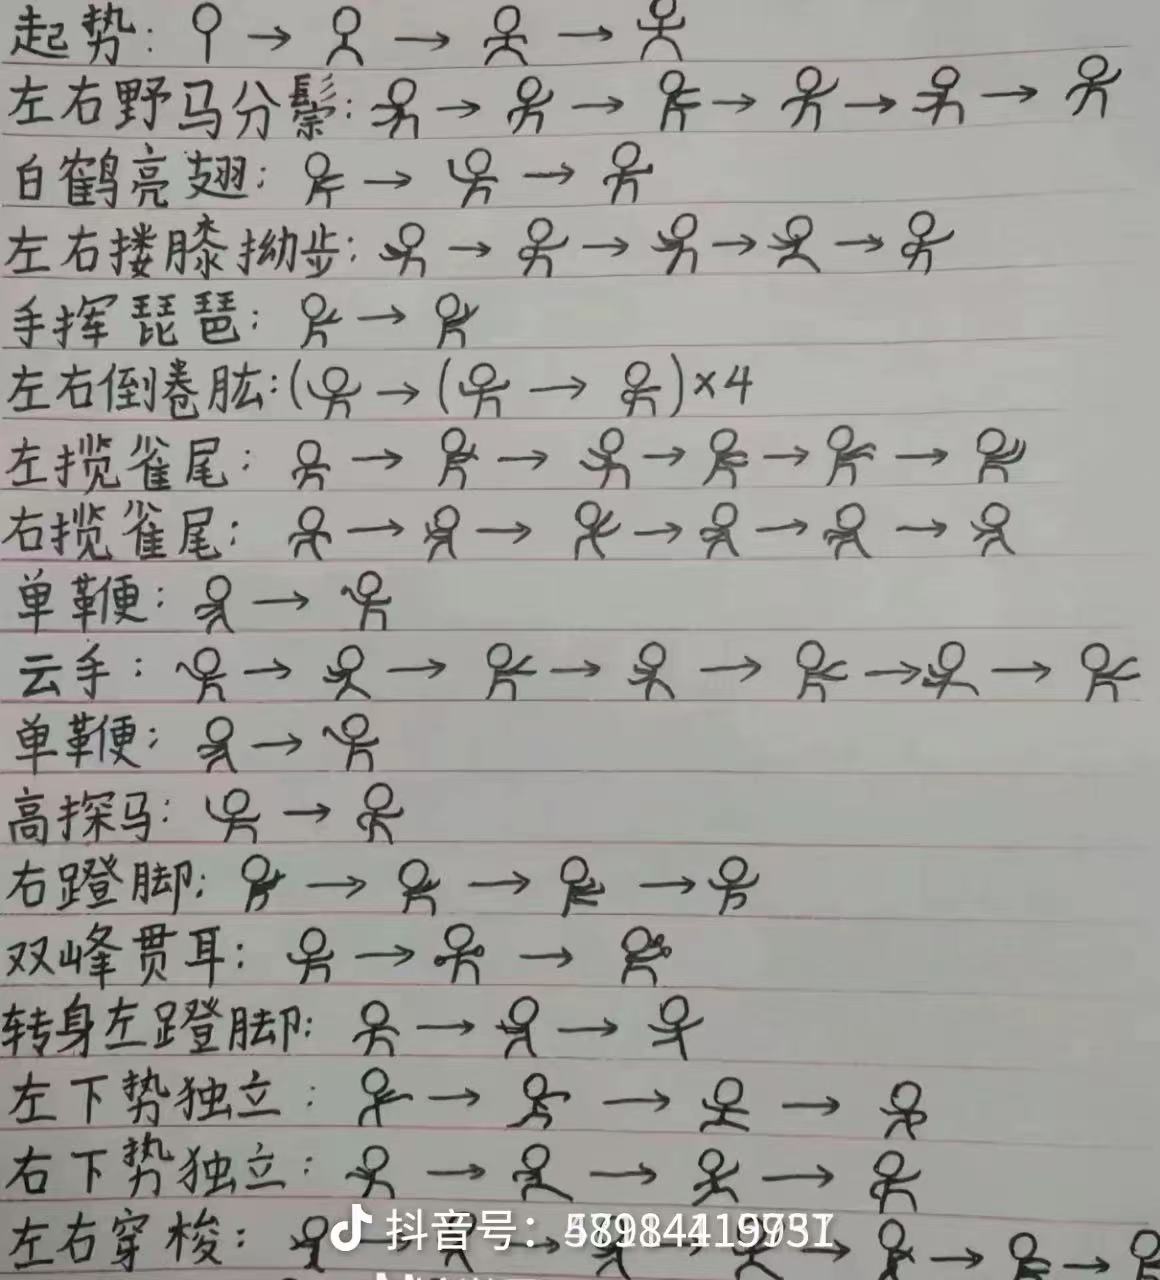 起势:
左右野马分鬃:
白鹤亮翅:
左右搂膝拗步:
手挥琵琶:
左右倒卷肱:( ( )×4
左揽雀尾:
右揽雀尾:
单鞭:
云手:
单鞭:
高探马:
右蹬脚:
双峰贯耳:
转身左蹬脚:
左下势独立:
右下势独立:
左右穿梭:
抖音号: